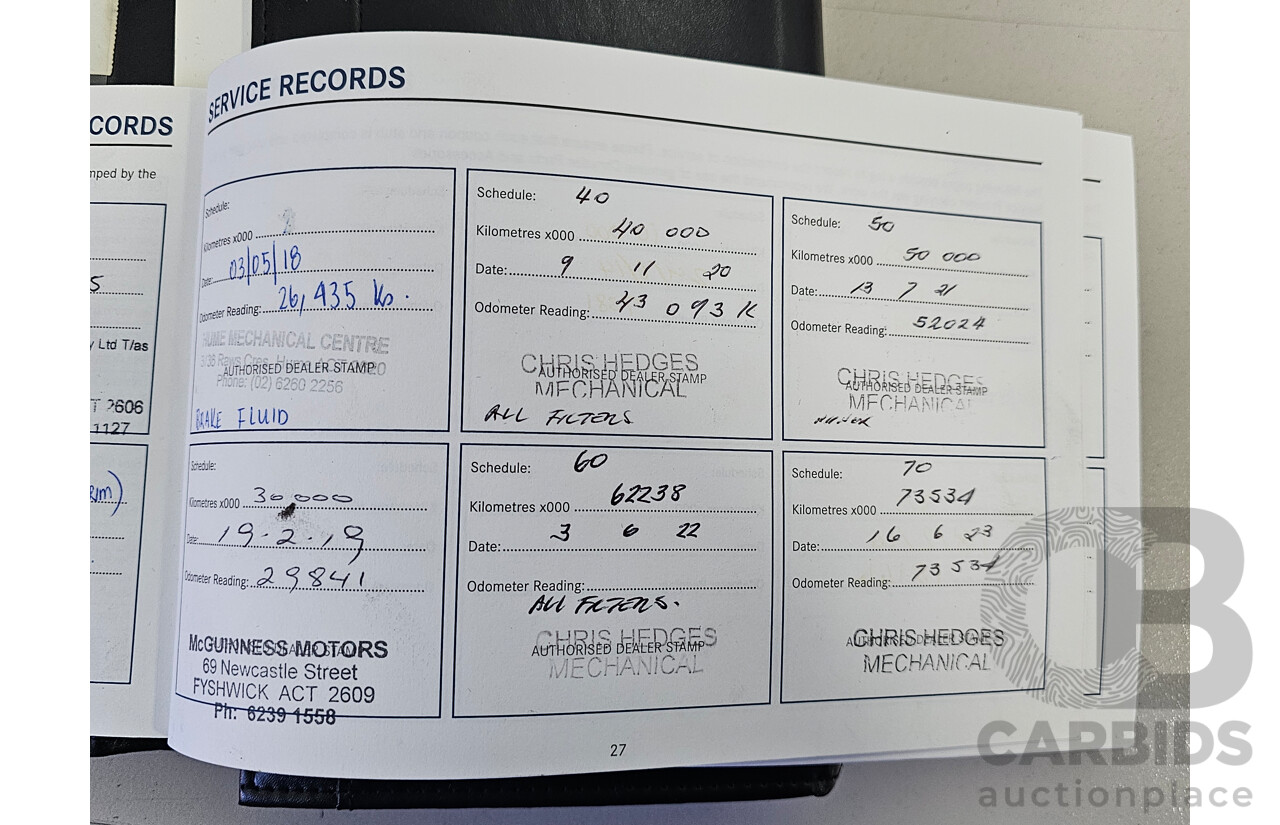 CORDS
mped by the
5
y Ltd T/as
T 2606
1127
SERVICE RECORDS
Schedule:
Kilometres x000
Date: 03/05/18
Odometer Reading: 26,435 Ks.
HUME MECHANICAL CENTRE
3/36 Raws Cres, Hume ACT 2620
AUTHORISED DEALER STAMP
Phone: (02) 6260 2256
BRAKE FLUID
Schedule: 40
Kilometres x000 40 000
Date: 9 11 20
Odometer Reading: 43 093 K
CHRIS HEDGES
AUTHORISED DEALER STAMP
MECHANICAL
ALL FILTERS
Schedule: 50
Kilometres x000 50 000
Date: 13 7 21
Odometer Reading: 52024
CHRIS HEDGES
AUTHORISED DEALER STAMP
MECHANICAL
Schedule:
Kilometres x000 30000
Date: 19.2.19
Odometer Reading: 29841
McGUINNESS MOTORS
69 Newcastle Street
FYSHWICK ACT 2609
Ph: 6239 1558
Schedule: 60
Kilometres x000 62238
Date: 3 6 22
Odometer Reading:
ALL FILTERS.
CHRIS HEDGES
AUTHORISED DEALER STAMP
MECHANICAL
Schedule: 70
Kilometres x000 73534
Date: 16 6 23
Odometer Reading: 73534
AUTHORISED DEALER STAMP
CHRIS HEDGES
MECHANICAL
27
CB
CARBIDS
auctionplace